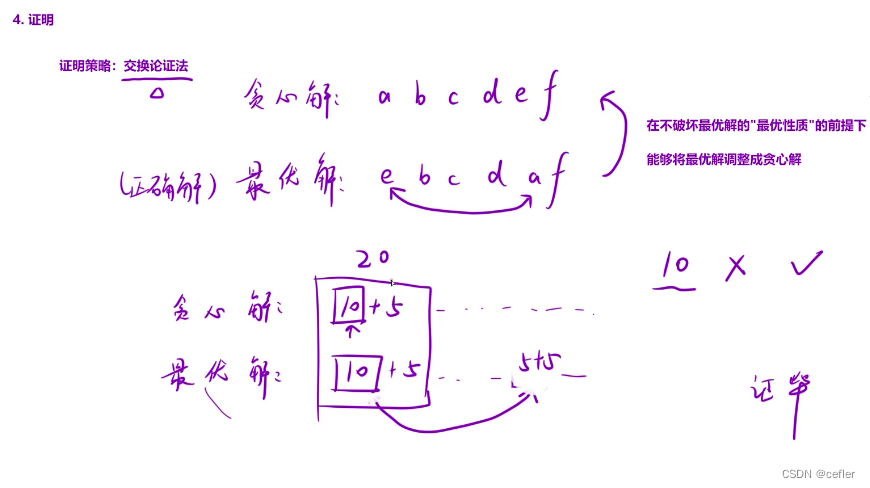 4. 证明
证明策略：交换论证法
贪心解： a b c d e f
在不破坏最优解的"最优性质"的前提下
能够将最优解调整成贪心解
(正确解) 最优解： e b c d a f
20
10 × ✓
贪心解： 10+5
最优解： 10+5 5+5
证毕
CSDN @cefler